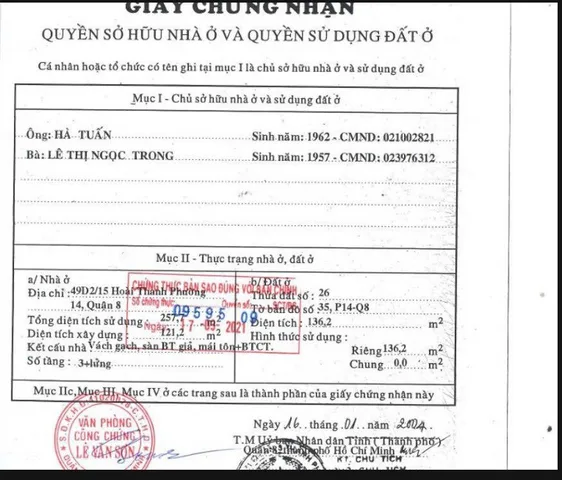 GIẤY CHỨNG NHẬN
QUYỀN SỞ HỮU NHÀ Ở VÀ QUYỀN SỬ DỤNG ĐẤT Ở
Cá nhân hoặc tổ chức có tên ghi tại mục I là chủ sở hữu nhà ở và sử dụng đất ở
Mục I - Chủ sở hữu nhà ở và sử dụng đất ở
Ông: HÀ TUẤN Sinh năm: 1962 - CMND: 021002821
Bà: LÊ THỊ NGỌC TRONG Sinh năm: 1957 - CMND: 023976312
Mục II - Thực trạng nhà ở, đất ở
a/ Nhà ở
Địa chỉ: 49D2/15 Hoài Thanh Phường
14, Quận 8
Tổng diện tích sử dụng: 257, m²
Diện tích xây dựng: 121,2 m²
Kết cấu nhà: Vách gạch, sàn BT giả, mái tôn+BTCT.
Số tầng: 3+lửng
b/ Đất ở
Thửa đất số: 26
Tờ bản đồ số: 35, P14-Q8
Diện tích: 136,2 m²
Hình thức sử dụng:
Riêng 136,2 m²
Chung 0,0 m²
CHỨNG THỰC BẢN SAO ĐÚNG VỚI BẢN CHÍNH
Số chứng thực 09595 Quyển số 09 SCT/BS
Ngày 17-09-2021
Mục IIc, Mục III, Mục IV ở các trang sau là thành phần của giấy chứng nhận này
Ngày 16 tháng 01 năm 2004
T.M Uỷ ban Nhân dân Tỉnh (Thành phố)
Quận 8 thành phố Hồ Chí Minh
KT. CHỦ TỊCH
PHÓ CHỦ TỊCH
VĂN PHÒNG
CÔNG CHỨNG
LÊ VĂN SƠN